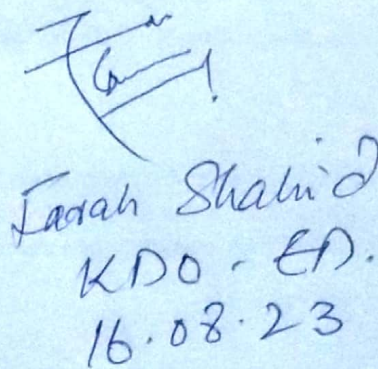 Farah Shahid
KDO - ED.
16.08.23